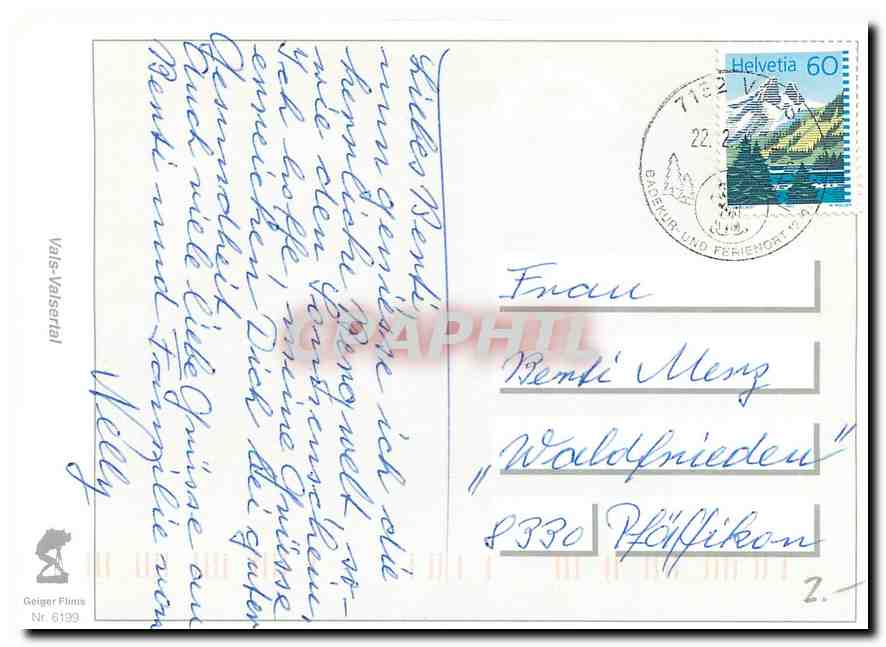 Liebes Berti
nun geniesse ich die
herrliche Bergwelt, so-
wie den Sonnenschein,
Ich hoffe, meine Grüsse
erreichen Dich bei guter
Gesundheit.
Auch viele liebe Grüsse an
Berti und Familie von
Nelly
Vals-Valsertal
Geiger Flims
Nr. 6199
Helvetia 60
7132 V
22. 2
BADEKUR- UND FERIENORT
Frau
Berti Merz
„Waldfrieden"
8330 Pfäffikon
2.-
CPAPHIL